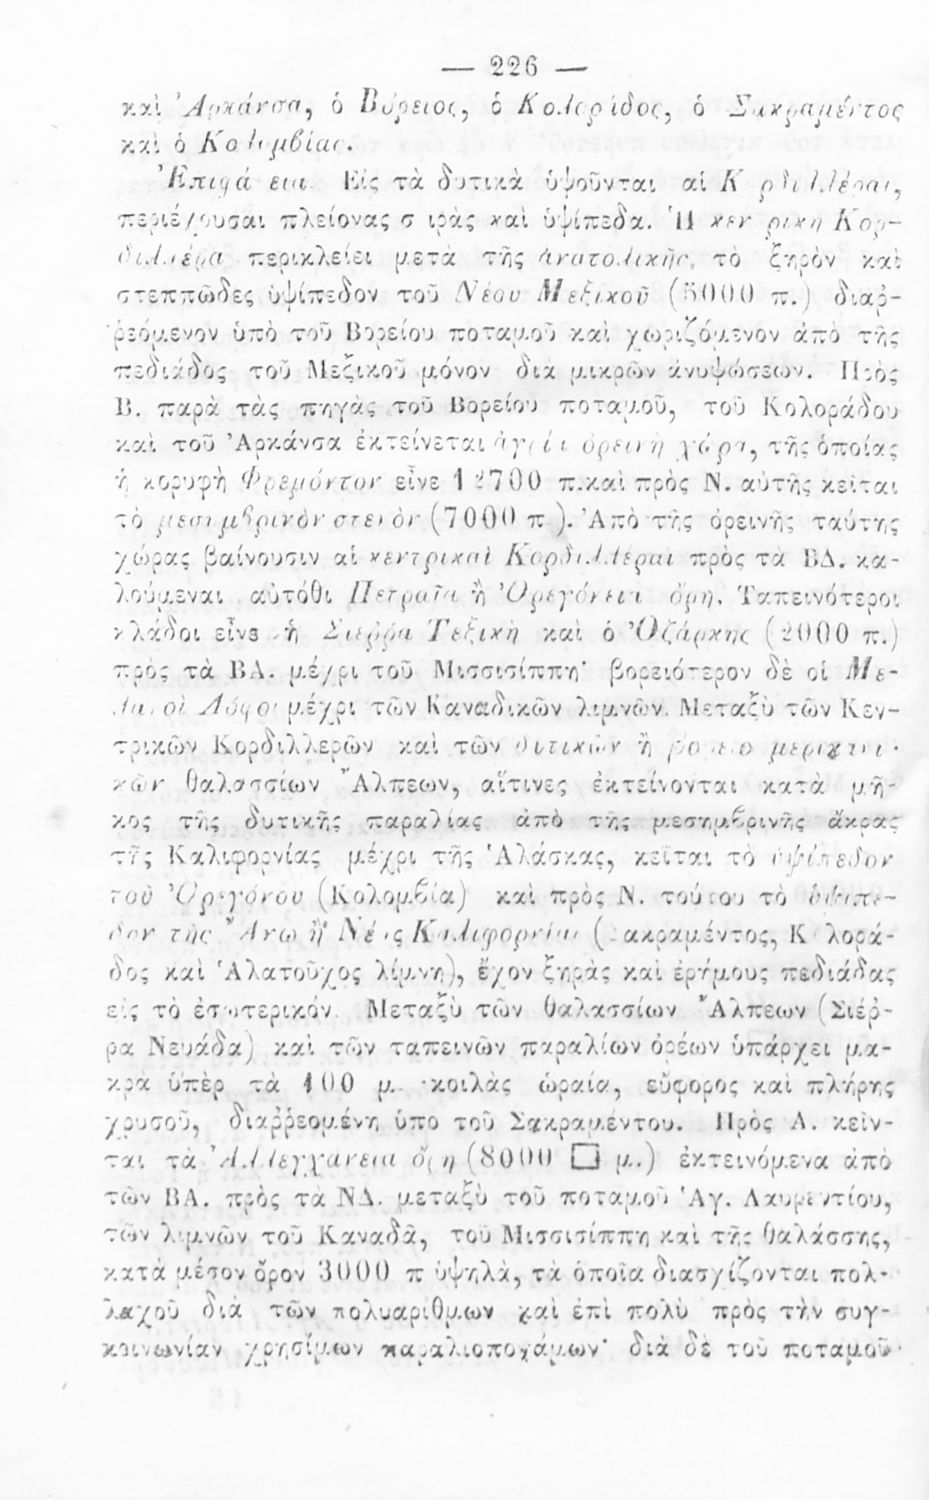 — 226 —
καὶ Ἀρκάνσα, ὁ Βόρειος, ὁ Κολορίδος, ὁ Σακραμέντος
καὶ ὁ Κολομβίας.
Εἰς τὰ δυτικὰ ὑψοῦνται αἱ
περιέχουσαι πλείονας σειρὰς καὶ ὑψίπεδα. Ἡ κεντρικὴ Κορ-
διλλιέρα περικλείει μετὰ τῆς ἀνατολικῆς, τὸ ξηρὸν καὶ
στεππῶδες ὑψίπεδον τοῦ Νέου Μεξικοῦ (5000 π.) διαῤ-
ῥεόμενον ὑπὸ τοῦ Βορείου ποταμοῦ καὶ χωριζόμενον ἀπὸ τῆς
πεδιάδος τοῦ Μεξικοῦ μόνον διὰ μικρῶν ἀνυψώσεων. Πρὸς
Β. παρὰ τὰς πηγὰς τοῦ Βορείου ποταμοῦ, τοῦ Κολοράδου
καὶ τοῦ Ἀρκάνσα ἐκτείνεται ἀγρία ὀρεινὴ χώρα, τῆς ὁποίας
ἡ κορυφὴ Φρεμόντον εἶνε 12700 π. καὶ πρὸς Ν. αὐτῆς κεῖται
τὸ μεσημβρινὸν στενὸν (7000 π.). Ἀπὸ τῆς ὀρεινῆς ταύτης
χώρας βαίνουσιν αἱ κεντρικαὶ Κορδιλλιέραι πρὸς τὰ ΒΔ. κα-
λούμεναι αὐτόθι Πετραῖα ἢ Ὀρεγόνεια ὄρη. Ταπεινότεροι
κλάδοι εἶνε ἡ Σιέρρα Τεξικὴ καὶ ὁ Ὀζάρκης (2000 π.)
πρὸς τὰ ΒΑ. μέχρι τοῦ Μισσισίππη· βορειότερον δὲ οἱ Μέ-
λανοι Λόφοι μέχρι τῶν Καναδικῶν λιμνῶν. Μεταξὺ τῶν Κεν-
τρικῶν Κορδιλλερῶν καὶ τῶν δυτικῶν ἢ βορειοαμερικανι-
κῶν θαλασσίων Ἄλπεων, αἵτινες ἐκτείνονται κατὰ μῆ-
κος τῆς δυτικῆς παραλίας ἀπὸ τῆς μεσημβρινῆς ἄκρας
τῆς Καλιφορνίας μέχρι τῆς Ἀλάσκας, κεῖται τὸ ὑψίπεδον
τοῦ Ὀρεγόνου (Κολομβία) καὶ πρὸς Ν. τούτου τὸ ὑψίπε-
δον τῆς Ἄνω ἢ Νέας Καλιφορνίας (Σακραμέντος, Κολορά-
δος καὶ Ἀλατοῦχος λίμνη), ἔχον ξηρὰς καὶ ἐρήμους πεδιάδας
εἰς τὸ ἐσωτερικόν. Μεταξὺ τῶν θαλασσίων Ἄλπεων (Σιέρ-
ρα Νευάδα) καὶ τῶν ταπεινῶν παραλίων ὀρέων ὑπάρχει μα-
κρὰ ὑπὲρ τὰ 100 μ. κοιλὰς ὡραία, εὔφορος καὶ πλήρης
χρυσοῦ, διαῤῥεομένη ὑπὸ τοῦ Σακραμέντου. Πρὸς Α. κεῖν-
ται τὰ Ἀλλεγχάνεια ὄρη (8000 □ μ.) ἐκτεινόμενα ἀπὸ
τῶν ΒΑ. πρὸς τὰ ΝΔ. μεταξὺ τοῦ ποταμοῦ Ἁγ. Λαυρεντίου,
τῶν λιμνῶν τοῦ Καναδᾶ, τοῦ Μισσισίππη καὶ τῆς θαλάσσης,
κατὰ μέσον ὅρον 3000 π ὑψηλὰ, τὰ ὁποῖα διασχίζονται πολ-
λαχοῦ διὰ τῶν πολυαρίθμων καὶ ἐπὶ πολὺ πρὸς τὴν συγ-
κοινωνίαν χρησίμων παραλιοποτάμων· διὰ δὲ τοῦ ποταμοῦ